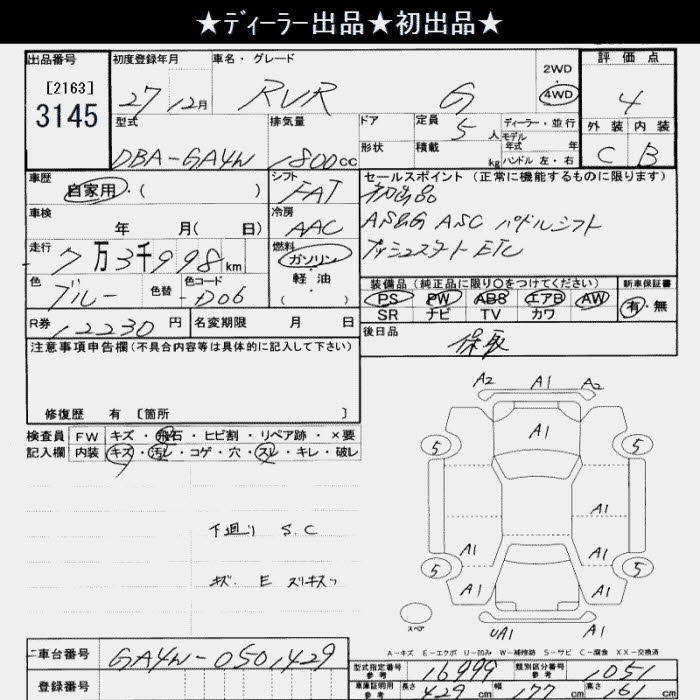 ★ディーラー出品★初出品★
出品番号 初度登録年月 車名・グレード 2WD 評価点
[2163]
3145 27 12月 RVR G 4WD 4
型式 排気量 ドア 定員 5人 ディーラー・並行 外装 内装
モデル年式 年
DBA-GA4W 1800cc 形状 積載 kg ハンドル 左・右 C B
車歴 シフト セールスポイント (正常に機能するものに限ります)
自家用・( ) FAT 初出品
車検 冷房 AS&G ASC パドルシフト
年 月( 日) AAC プッシュスタート ETC
走行 7万3千998km 燃料 ガソリン・軽油・( )
色 色替 色コード 装備品 (純正品に限り○をつけてください) 新車保証書
ブルー D06 PS PW ABS エアB AW 有・無
SR ナビ TV カワ
R券 12230円 名変期限 月 日 後日品
注意事項申告欄 (不具合内容等は具体的に記入して下さい) 保取
A2 A1 A2
修復歴 有 [箇所 ]
検査員 FW キズ・飛石・ヒビ割・リペア跡・×要
記入欄 内装 キズ・汚レ・コゲ・穴・スレ・キレ・破レ
A1
5 5
A1
下廻り S.C
A1 A1
キズ・E スリキズ
5 5
A1 A1
スペア UA1 A1
A-キズ E-エクボ U-凹み W-補修跡 S-サビ C-腐食 XX-交換済
車台番号 GA4W-0501429 型式指定番号 参考 16999 類別区分番号 参考 1051
登録番号 車庫証明用 参考 長さ 429cm 幅 177cm 高さ 161cm